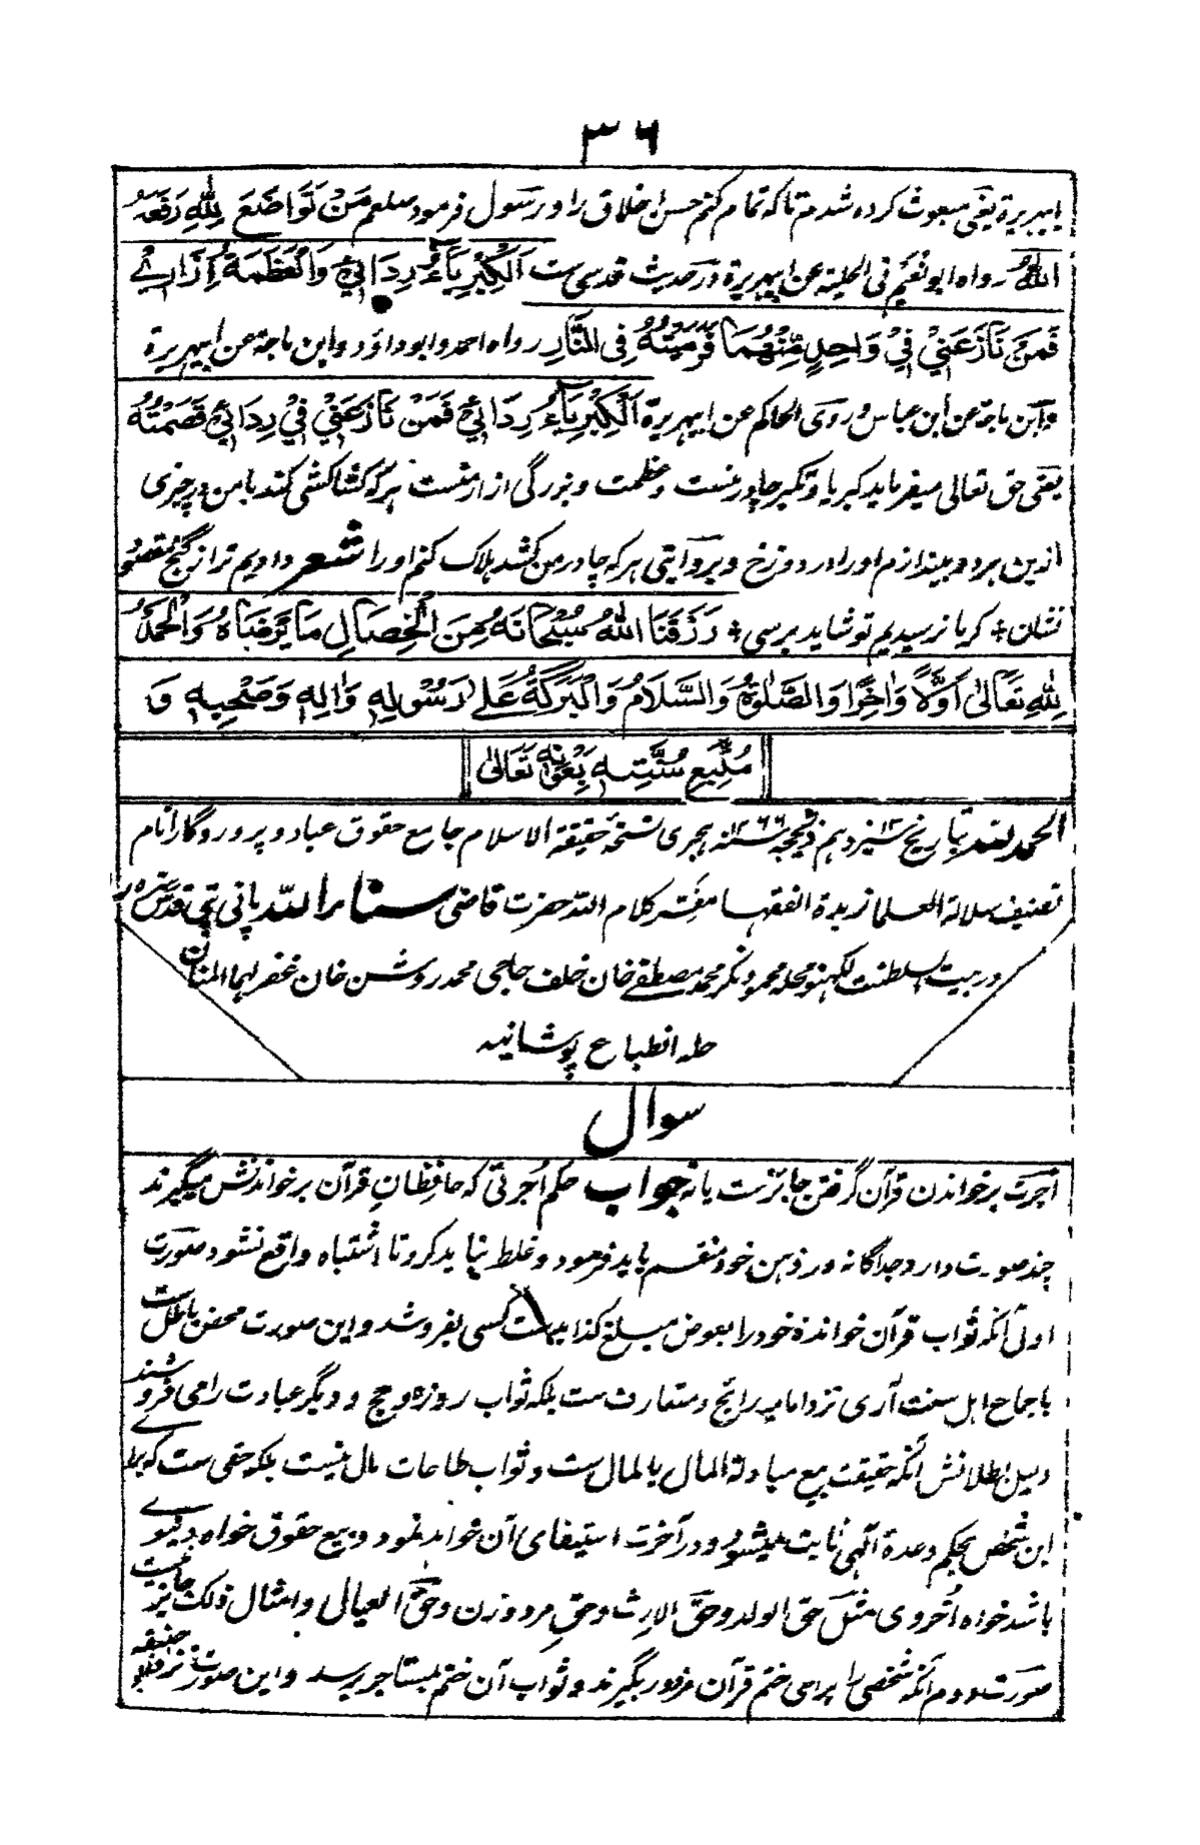 ۳۶
ابیهریرة یعنی مبعوث کرده شدم تاکه تمام کنم حسن اخلاق را و رسول فرمود صلعم مَنْ تَوَاضَعَ لِلّٰهِ رَفَعَهُ
اللّٰهُ رواه ابو نعیم فی الحلیة عن ابیهریرة و در حدیث قدسی ست اَلْکِبْرِیَآءُ رِدَائِیْ وَالْعَظَمَةُ اِزَارِیْ
فَمَنْ نَازَعَنِیْ فِیْ وَاحِدٍ مِّنْهُمَا قَرْمَیْتُهُ فِی النَّارِ رواه احمد و ابو داؤد و ابن ماجة عن ابیهریرة
و ابن ماجة عن ابن عباس و روی الحاکم عن ابیهریرة اَلْکِبْرِیَآءُ رِدَائِیْ فَمَنْ نَازَعَنِیْ فِیْ رِدَائِیْ قَصَمْتُهُ
یعنی حق تعالی میفرماید کبریا و تکبر چادر منست و عظمت و بزرگی ازار منست هر که کشاکشی کند با من در چیزی
ازین هر دو بیندازم او را در دوزخ و بروایتی هر که چادر من کشد هلاک کنم او را شعر دادیم ترا ز گنج مقصود
نشان ÷ گر ما نرسیدیم تو شاید برسی ÷ رَزَقَنَا اللّٰهُ سُبْحَانَهُ مِنَ الْخِصَالِ مَا یَرْضَاهُ وَالْحَمْدُ
لِلّٰهِ تَعَالٰی اَوَّلًا وَاٰخِرًا وَالصَّلٰوةُ وَالسَّلَامُ وَالْبَرَکَةُ عَلٰی رَسُوْلِهِ وَاٰلِهِ وَصَحْبِهِ وَ
مُتَّبِعِ سُنَّتِهِ بِعَوْنِهِ تَعَالٰی
الحمد لله بتاریخ ۱۳ سیزدهم ذیحجه ۱۲۶۶ سنه هجری نسخهٔ حقیقة الاسلام جامع حقوق عباد و پروردگار انام
تصنیف سلالة العلما زبدة الفقها مفسر کلام الله حضرت قاضی ثناء الله پانی پتی قدس سره
در بیت السلطنت لکهنو محله محمود نگر محمد مصطفے خان خلف حاجی محمد روشن خان غفر لهما المنان
حله انطباع پوشانید
سوال
اجرت بر خواندن قرآن گرفتن جائزست یا نه جواب حکم اُجرتی که حافظانِ قرآن بر خواندنش میگیرند
چند صورت دارد جداگانه در ذهن خود منقسم باید فرمود و غلط نباید کرد تا اشتباه واقع نشود صورت
اولی آنکه ثواب قرآن خوانده خود را بعوض مبلغ کذا بدست کسی بفروشد و این صورت محض باطل ست
باجماع اهل سنت آری نزد امامیه رائج و متعارف ست بلکه ثواب روزه و حج و دیگر عبادت را می فروشند
دلیل بطلانش آنکه حقیقت بیع مبادلة المال بالمال ست و ثواب طاعات مال نیست بلکه حقی ست که برای
این شخص بحکم وعدهٔ آلهی ثابت میشود و در آخرت استیفای آن خواهد نمود و بیع حقوق خواه دنیوے
باشد خواه اُخروی مثل حق الولد و حقّ الارث و حقِ مرد و زن و حقّ العیال و امثال ذلک جائز نیست
صورت دوم آنکه شخصی را برای ختم قرآن مزدور بگیرند و ثواب آن ختم بمستاجر برسد و این صورت نزد حنفیه